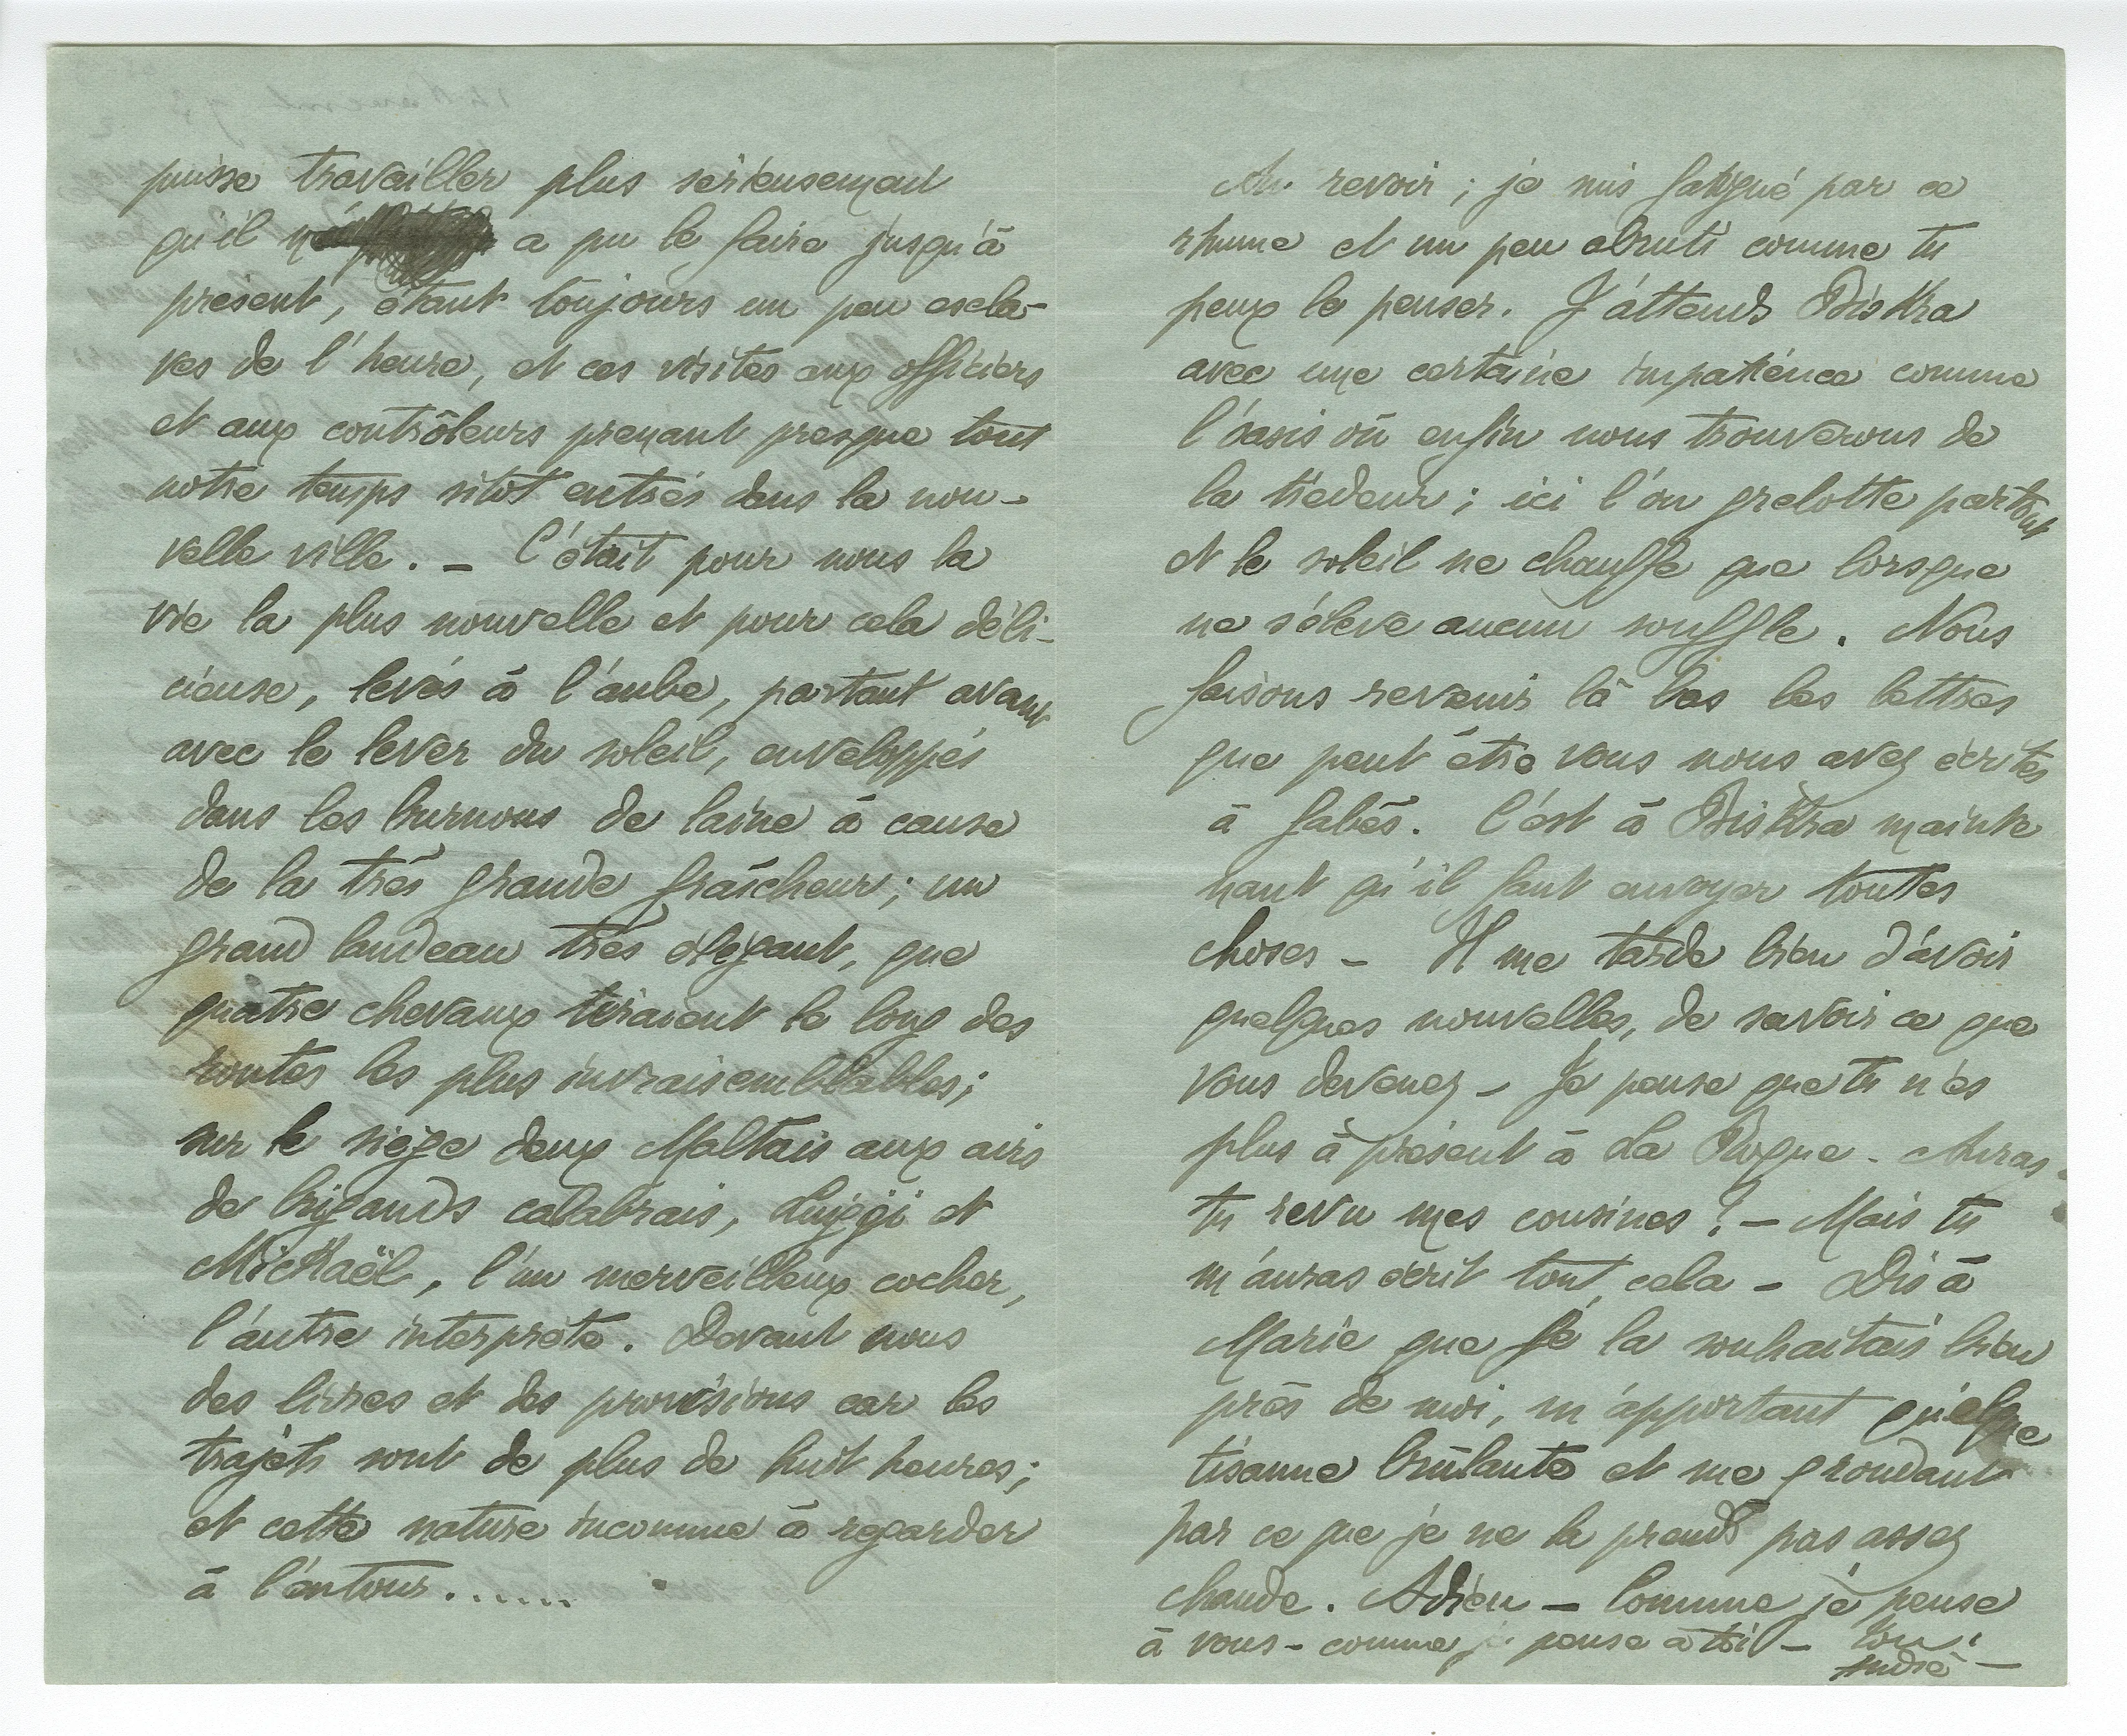 puisse travailler plus sérieusement
qu'il n'a pu le faire jusqu'à
présent, étant toujours un peu escla-
ves de l'heure, et ces visites aux officiers
et aux contrôleurs prenant presque tout
notre temps sitôt entrés dans la nou-
velle ville. – C'était pour nous la
vie la plus nouvelle et pour cela déli-
cieuse, levés à l'aube, partant avant
avec le lever du soleil, enveloppés
dans les burnous de laine à cause
de la très grande fraîcheur; un
grand landeau très élégant, que
quatre chevaux tiraient le long des
routes les plus invraisemblables;
sur le siège deux Maltais aux airs
de brigands calabrais, Luiggi et
Mickaël, l'un merveilleux cocher,
l'autre interprète. Devant nous
des livres et des provisions car les
trajets sont de plus de huit heures;
et cette nature inconnue à regarder
à l'entour......
Au revoir; je suis fatigué par ce
rhume et un peu abruti comme tu
peux le penser. J'attends Biskra
avec une certaine impatience comme
l'oasis où enfin nous trouverons de
la tiédeur; ici l'on grelotte partout
et le soleil ne chauffe que lorsque
ne s'élève aucun souffle. Nous
faisons revenir là bas les lettres
que peut être vous nous avez écrites
à Gabès. C'est à Biskra mainte
nant qu'il faut envoyer toutes
choses – Il me tarde bien d'avoir
quelques nouvelles, de savoir ce que
vous devenez – Je pense que tu n'es
plus à présent à La Roque – Auras-
tu revu mes cousines? – Mais tu
m'auras écrit tout cela – Dis à
Marie que je la souhaitais bien
près de moi, m'apportant quelque
tisanne brûlante et me grondant
par ce que je ne la prends pas assez
chaude. Adieu – Comme je pense
à vous – comme je pense à toi – ton
André –